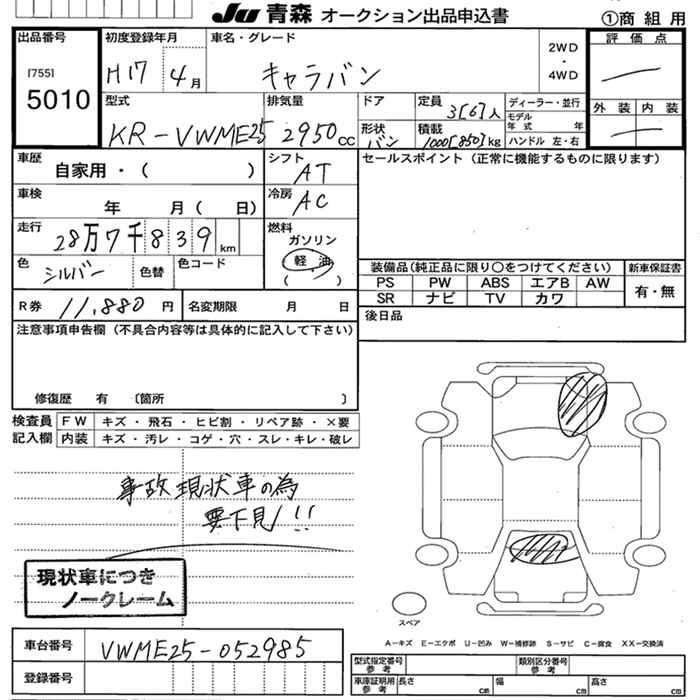 JU 青森 オークション出品申込書
①商組用
出品番号
[755]
5010
初度登録年月
H17 4月
車名・グレード
キャラバン
2WD
・
4WD
評価点
外装 内装
型式
KR-VWME25
排気量
2950cc
ドア
形状
バン
定員
3[6]人
積載
1000[850]kg
ディーラー・並行
モデル
年式 年
ハンドル 左・右
車歴
自家用・( )
シフト
AT
セールスポイント (正常に機能するものに限ります)
車検
年 月( 日)
冷房
AC
走行
28万7千839km
燃料
ガソリン
軽油
( )
色
シルバー
色替
色コード
装備品(純正品に限り○をつけてください)
新車保証書
PS PW ABS エアB AW
SR ナビ TV カワ
有・無
R券 11,880円
名変期限 月 日
後日品
注意事項申告欄 (不具合内容等は具体的に記入して下さい)
修復歴 有 〔箇所 〕
検査員
記入欄
FW キズ・飛石・ヒビ割・リペア跡・×要
内装 キズ・汚レ・コゲ・穴・スレ・キレ・破レ
事故現状車の為
要下見!!
現状車につき
ノークレーム
スペア
A-キズ E-エクボ U-凹み W-補修跡 S-サビ C-腐食 XX-交換済
車台番号 VWME25-052985
登録番号
型式指定番号
参考
類別区分番号
参考
車庫証明用
参考
長さ cm 幅 cm 高さ cm